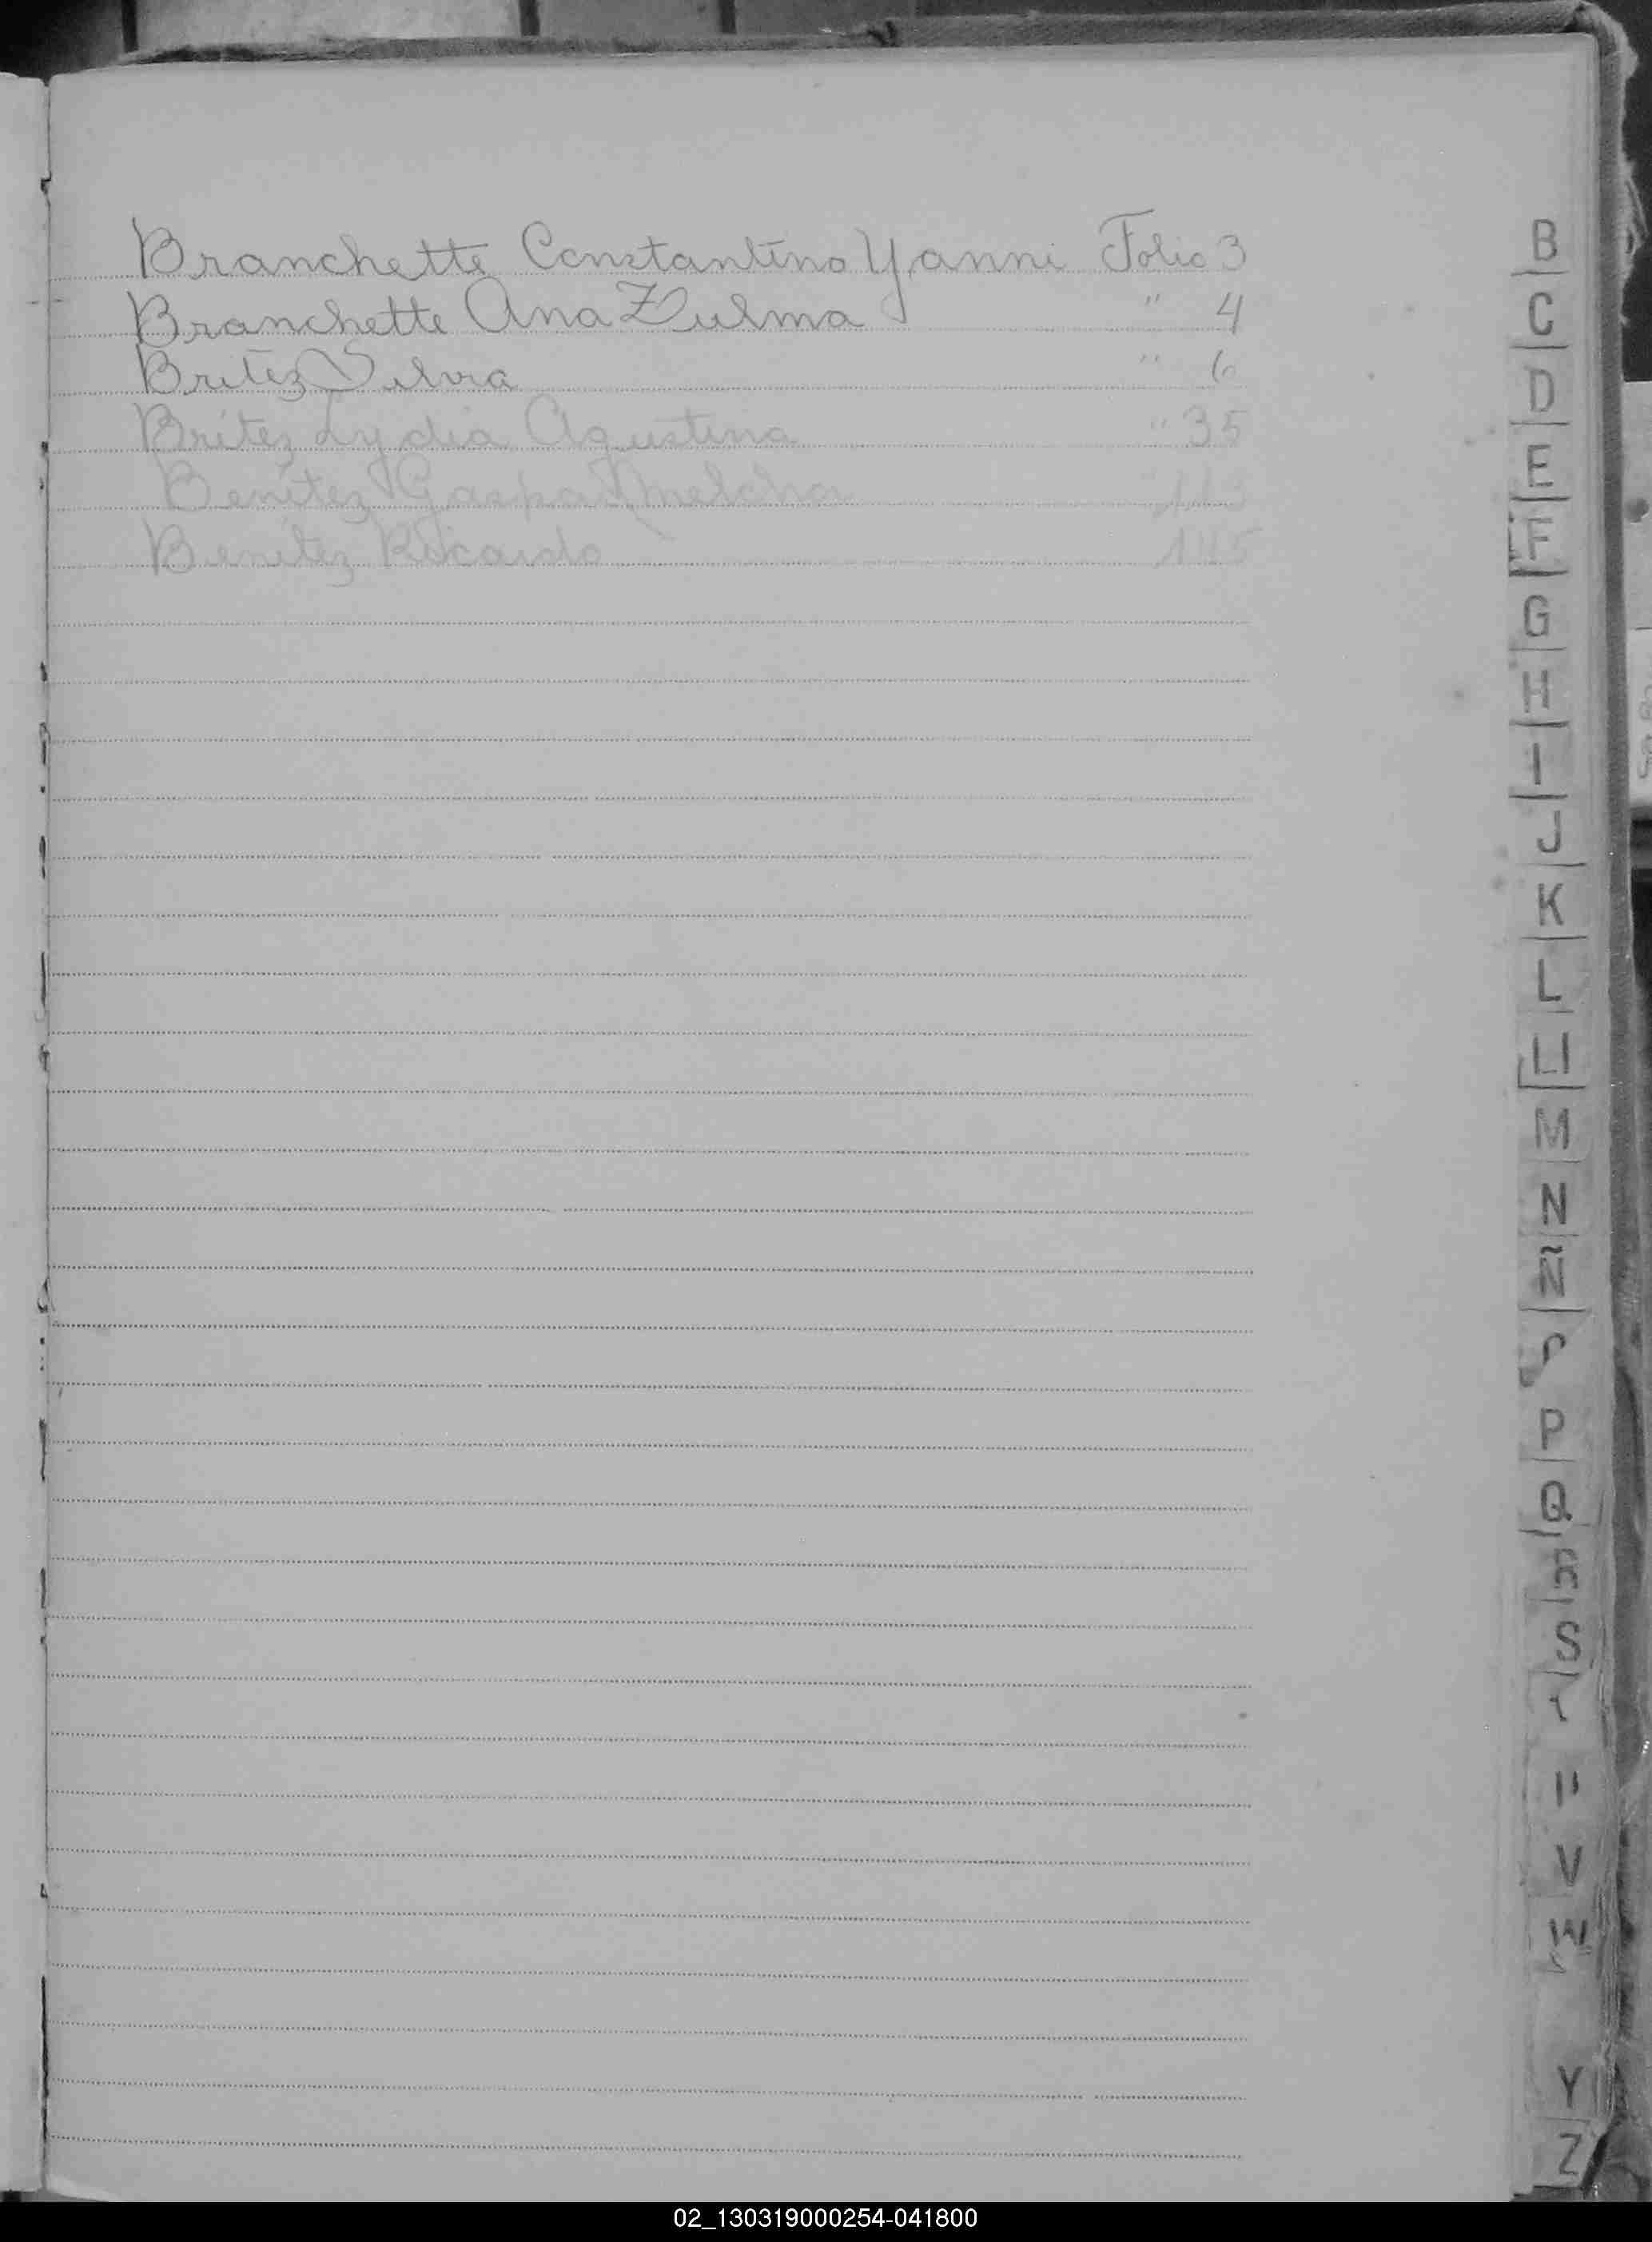 Branchette Constantino Yanni Folio 3
Branchette Ana Zulma " 4
Britez Silvia " 6
Britez Lydia Agustina " 35
Benitez Gaspar Melchor 113
Benitez Ricardo 145
B
C
D
E
F
G
H
I
J
K
L
Ll
M
N
Ñ
P
Q
R
S
V
W
Y
Z
02_130319000254-041800